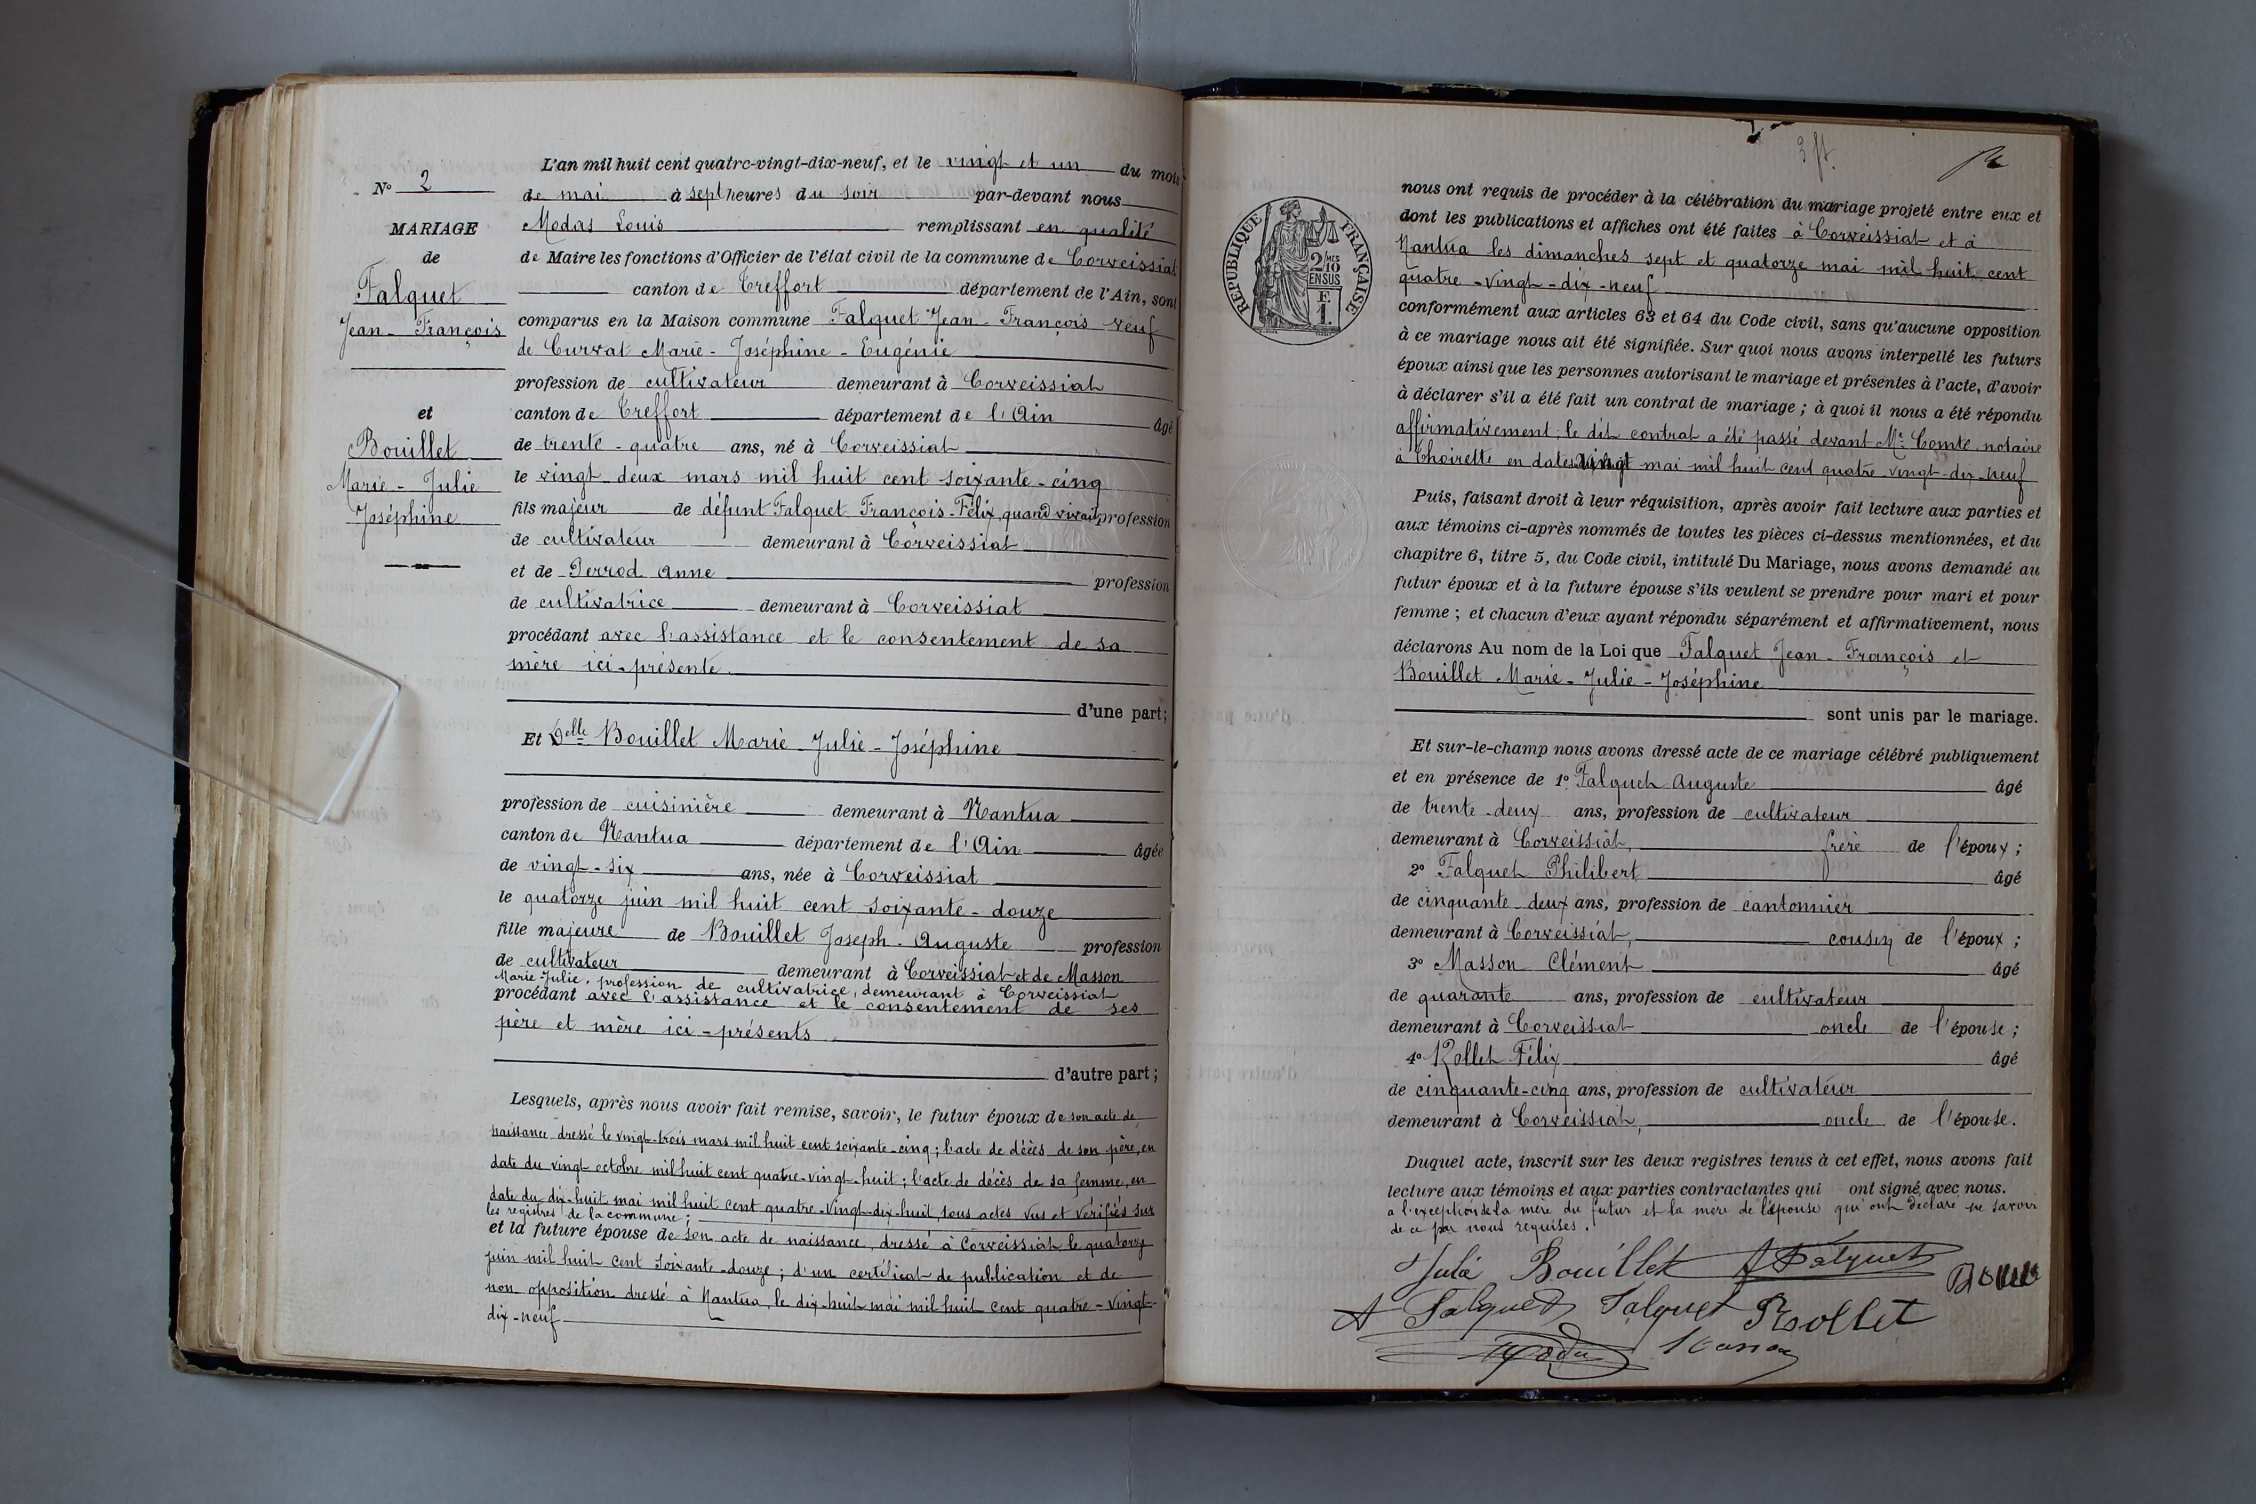 L'an mil huit cent quatre-vingt-dix-neuf, et le vingt et un du mois
N° 2
de mai à sept heures du soir par-devant nous
MARIAGE
Modas Louis remplissant en qualité
de
de Maire les fonctions d'Officier de l'état civil de la commune de Corveissiat
Falquet
canton de Treffort département de l'Ain, sont
Jean-François
comparus en la Maison commune Falquet Jean-François veuf
de Curvat Marie-Joséphine-Eugénie
profession de cultivateur demeurant à Corveissiat
et
canton de Treffort département de l'Ain âgé
Bouillet
de trente-quatre ans, né à Corveissiat
Marie-Julie
le vingt-deux mars mil huit cent soixante-cinq
Joséphine
fils majeur de défunt Falquet François-Félix, quand vivait, profession
de cultivateur demeurant à Corveissiat
et de Perrod Anne profession
de cultivatrice demeurant à Corveissiat
procédant avec l'assistance et le consentement de sa
mère ici-présente
d'une part;
Et Delle Bouillet Marie-Julie-Joséphine
profession de cuisinière demeurant à Nantua
canton de Nantua département de l'Ain âgée
de vingt-six ans, née à Corveissiat
le quatorze juin mil huit cent soixante-douze
fille majeure de Bouillet Joseph-Auguste profession
de cultivateur demeurant à Corveissiat et de Masson
Marie-Julie, profession de cultivatrice, demeurant à Corveissiat
procédant avec l'assistance et le consentement de ses
père et mère ici-présents
d'autre part;
Lesquels, après nous avoir fait remise, savoir, le futur époux de son acte de
naissance dressé le vingt-trois mars mil huit cent soixante-cinq; l'acte de décès de son père, en
date du vingt octobre mil huit cent quatre-vingt-huit; l'acte de décès de sa femme, en
date du dix-huit mai mil huit cent quatre-vingt-dix-huit, tous actes vus et vérifiés sur
les registres de la commune;
et la future épouse de son acte de naissance, dressé à Corveissiat le quatorze
juin mil huit cent soixante-douze; d'un certificat de publication et de
non opposition dressé à Nantua, le dix-huit mai mil huit cent quatre-vingt-
dix-neuf
3 ft.
RÉPUBLIQUE FRANÇAISE
2/10 MES
EN SUS
F.
1.
nous ont requis de procéder à la célébration du mariage projeté entre eux et
dont les publications et affiches ont été faites à Corveissiat et à
Nantua les dimanches sept et quatorze mai mil huit cent
quatre-vingt-dix-neuf
conformément aux articles 63 et 64 du Code civil, sans qu'aucune opposition
à ce mariage nous ait été signifiée. Sur quoi nous avons interpellé les futurs
époux ainsi que les personnes autorisant le mariage et présentes à l'acte, d'avoir
à déclarer s'il a été fait un contrat de mariage; à quoi il nous a été répondu
affirmativement; le dit contrat a été passé devant Me Comte notaire
à Thoirette en date vingt mai mil huit cent quatre-vingt-dix-neuf
Puis, faisant droit à leur réquisition, après avoir fait lecture aux parties et
aux témoins ci-après nommés de toutes les pièces ci-dessus mentionnées, et du
chapitre 6, titre 5, du Code civil, intitulé Du Mariage, nous avons demandé au
futur époux et à la future épouse s'ils veulent se prendre pour mari et pour
femme; et chacun d'eux ayant répondu séparément et affirmativement, nous
déclarons Au nom de la Loi que Falquet Jean-François et
Bouillet Marie-Julie-Joséphine
sont unis par le mariage.
Et sur-le-champ nous avons dressé acte de ce mariage célébré publiquement
et en présence de 1° Falquet Auguste âgé
de trente-deux ans, profession de cultivateur
demeurant à Corveissiat, frère de l'époux;
2° Falquet Philibert âgé
de cinquante-deux ans, profession de cantonnier
demeurant à Corveissiat, cousin de l'époux;
3° Masson Clément âgé
de quarante ans, profession de cultivateur
demeurant à Corveissiat oncle de l'épouse;
4° Rollet Félix âgé
de cinquante-cinq ans, profession de cultivateur
demeurant à Corveissiat, oncle de l'épouse.
Duquel acte, inscrit sur les deux registres tenus à cet effet, nous avons fait
lecture aux témoins et aux parties contractantes qui ont signé avec nous.
à l'exception de la mère du futur et la mère de l'épouse qui ont déclaré ne savoir
de ce par nous requises.
Julie Bouillet Falquet
A Falquet Falquet Rollet
Modas Masson